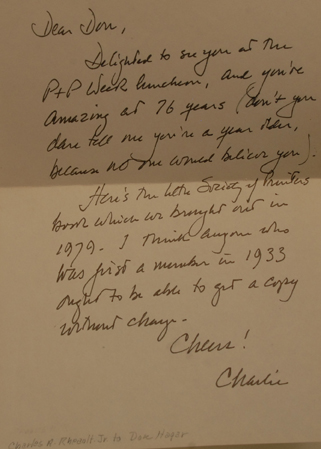 Dear Don,
Delighted to see you at the
P+P Week luncheon, and you're
amazing at 76 years (don't you
dare tell me you're a year older,
because no one would believe you).
Here's the little Society of Printers
book which we brought out in
1979. I think anyone who
was first a member in 1933
ought to be able to get a copy
without charge.
Cheers!
Charlie
Charles A. Jr. to Don Hagar